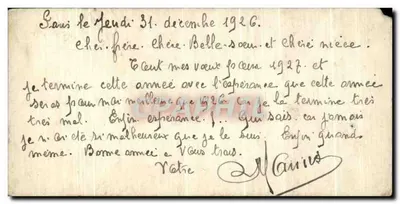 Paris le Jeudi 31. décembre 1926.
Cher frère. Chère Belle-sœur et Chère nièce.
Tout mes vœux pour 1927. et
je termine cette année avec l'espérance que cette année
sera pour moi meilleure que 1926 je la termine très
très mal. Enfin espérance. qui sait. car jamais
je n'ai été si malheureux que je le suis. Enfin quand
même. Bonne année a Vous trois.
Votre Marius